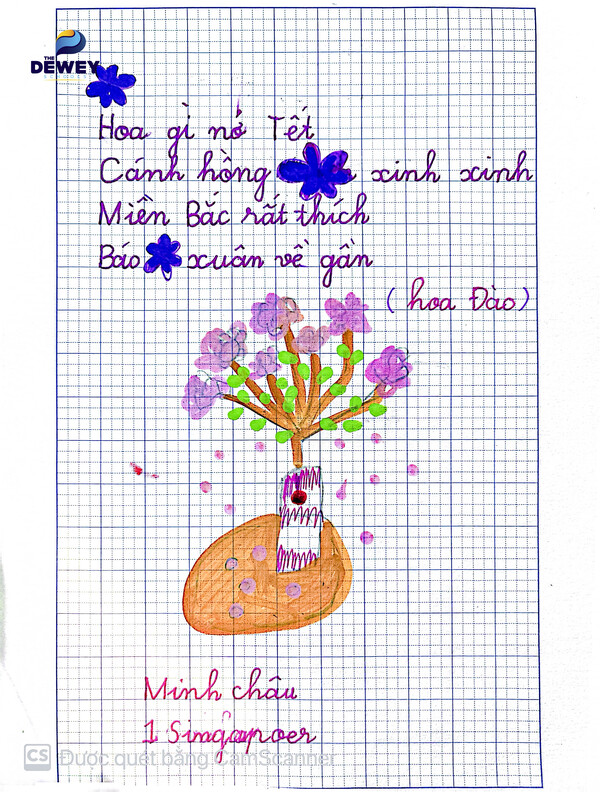 THE
DEWEY
SCHOOLS
Hoa gì nở Tết
Cánh hồng xinh xinh
Miền Bắc rất thích
Báo xuân về gần
(hoa Đào)
Minh châu
1 Singapoer
CS Được quét bằng CamScanner